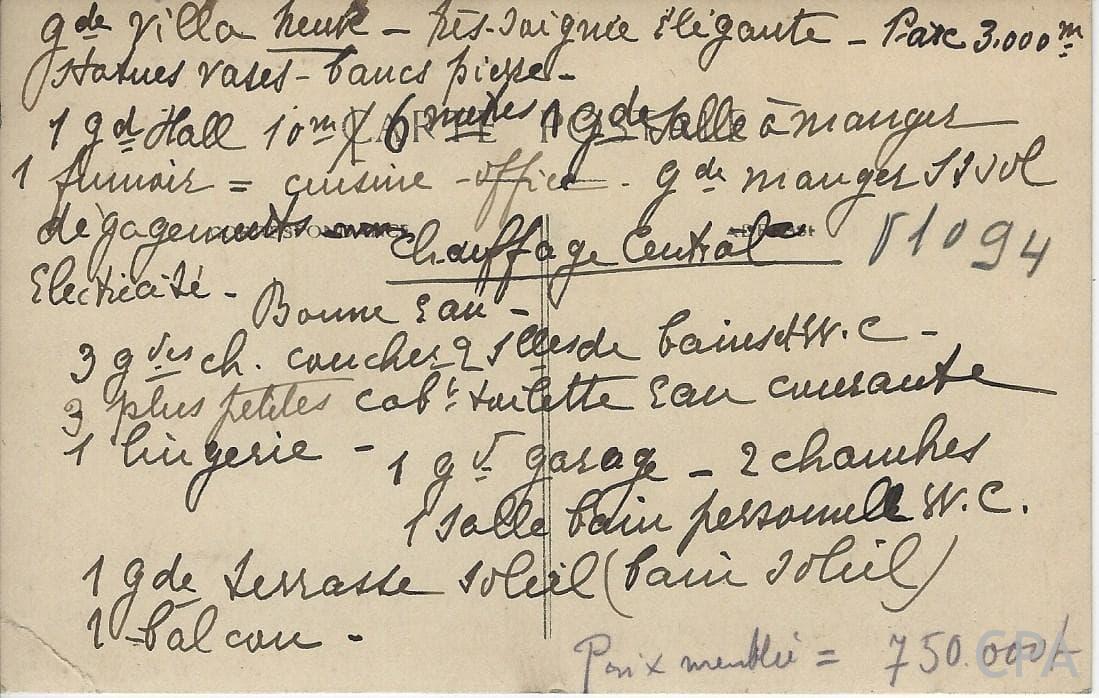 gde villa neuve - très soignée élégante - Parc 3.000 m
statues vases - bancs pierre -
CARTE POSTALE
1 gd Hall 10m X 6 mètres 1 gde salle à manger
1 fumoir = cuisine - office - gde manger SS sol
dégagements
CORRESPONDANCE ADRESSE
Chauffage Central 51094
Electricité - Bonne Eau -
3 gdes ch. coucher 2 Slles de bains et W.C -
3 plus petites cabt toilette Eau courante
1 lingerie - 1 gd garage - 2 chambres
1 salle bain personnel W.C.
1 gde terrasse soleil (bain soleil)
1 balcon -
Prix meublée = 750.000
CPA